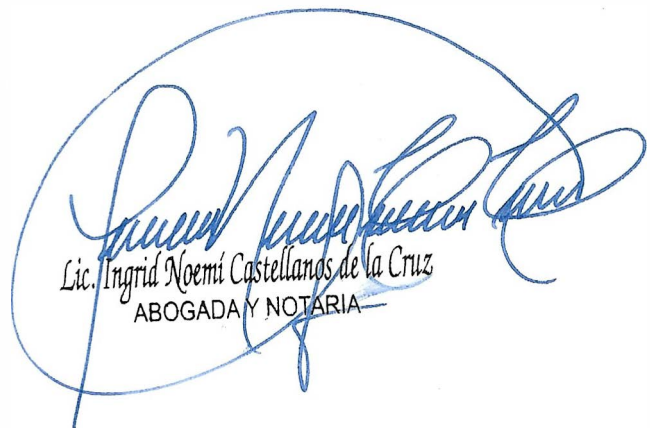 Lic. Ingrid Noemí Castellanos de la Cruz
ABOGADA Y NOTARIA